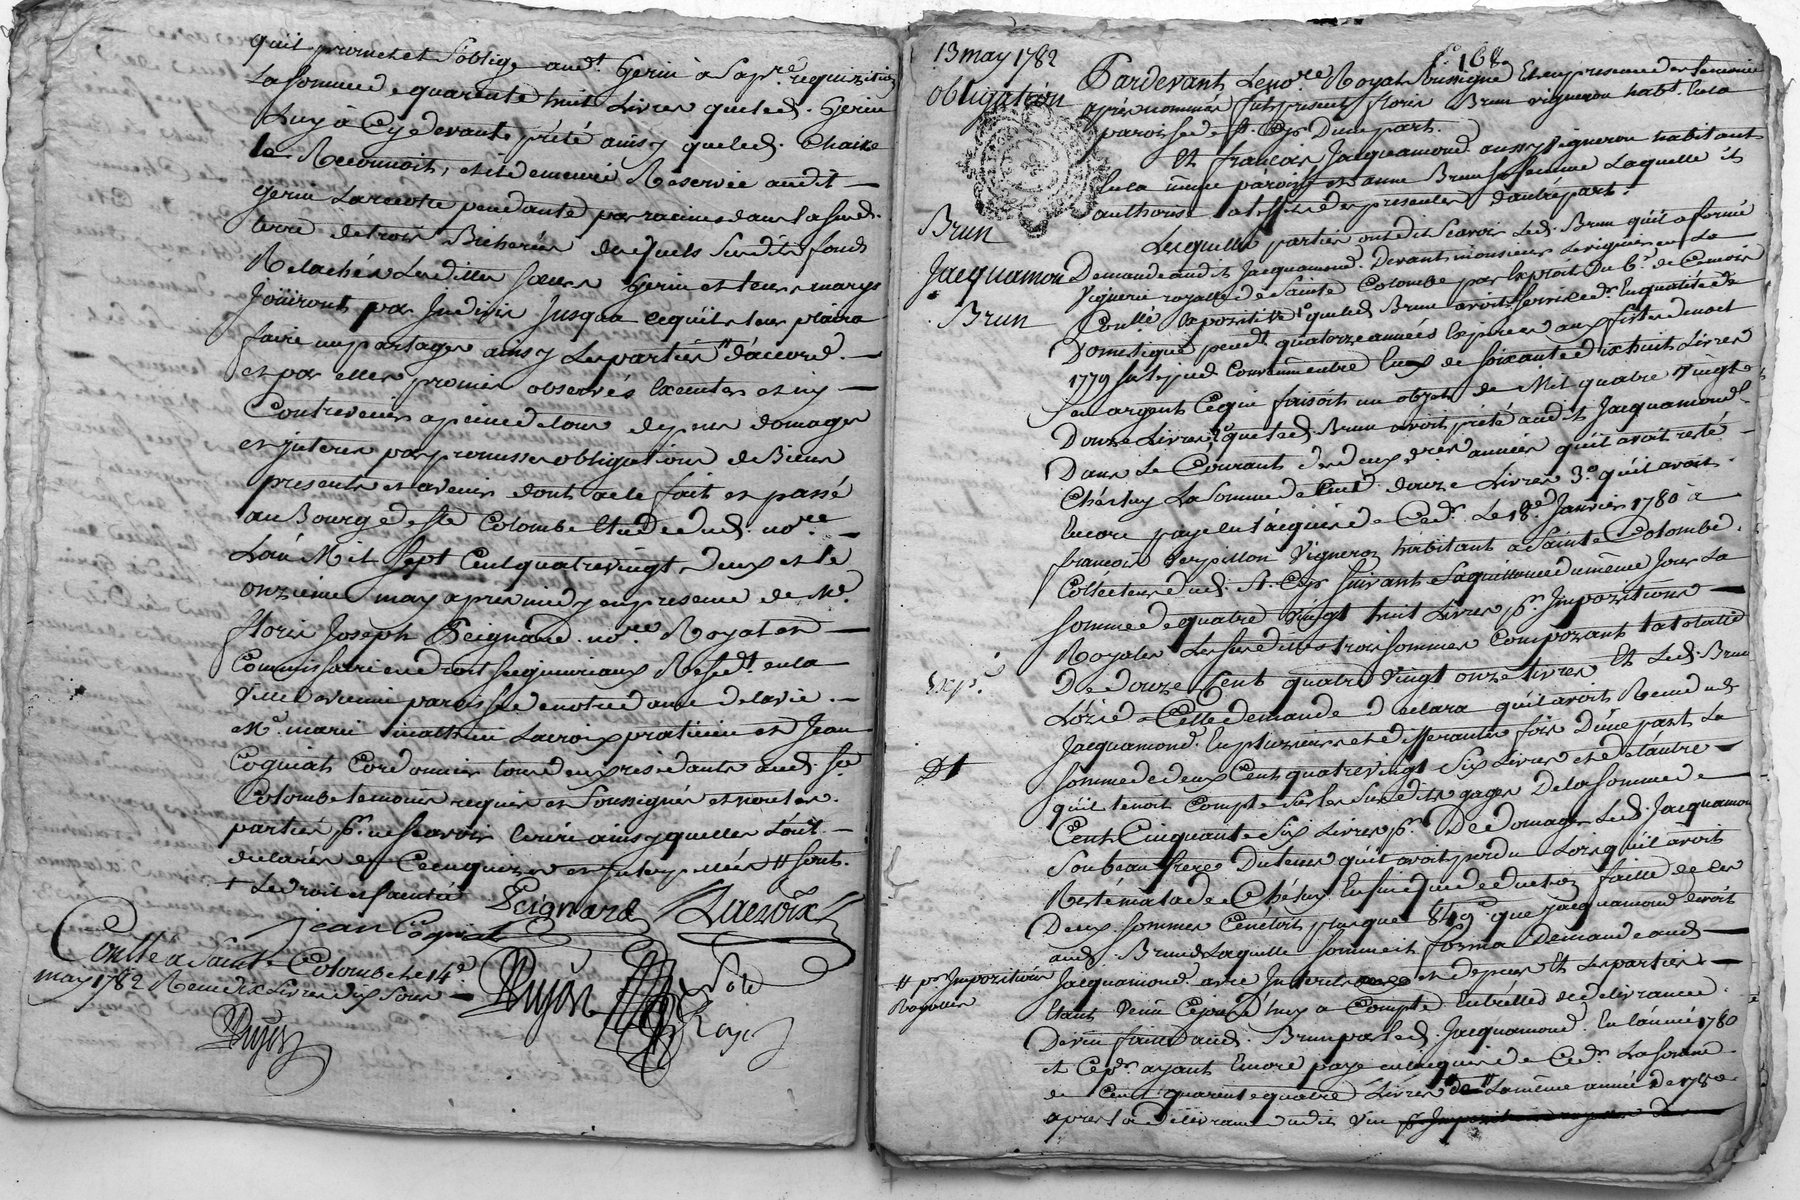 quil promet et s'oblige aud.t Gerin a sa p.re requizition
La somme de quarente huit Livres que led. Gerin
Luy a Cy devant prété ainsy que led. Chaize
le Reconnoit, et il demeure Reservée audit
Gerin La recolte pendante par racines dans la sus d.
terre de trois Bicherées desquels susdits fonds
Relachés Lesdittes soeurs Gerin et leurs marys
Joüiront par Indivis Jusqua ce quils leur plaira
faire un partage ainsy Les parties d'accord.
et par elles promis observés Executer et ny
Contrevenir a peine de tous depens domages
et interes par promesses obligations de Biens
presents et avenir dont acte fait et passé
au Bourg de Ste Colombe Etude dud. no.re
L'an Mil Sept Cent quatre vingt deux et le
onzieme may apres midy en presence de Me.
floris Joseph Peignard no.re Royal et
Commissaire en droits seigneuriaux Resid.t en la
Ville de vienne paroisse de notre dame de la vie
Me. marie mathieu Lacroix praticien et Jean
Cogniat Cordonnier tous deux residants aud. Ste
Colombe temoins requis et Soussignés et non les
parties p.r ne sçavoir écrire ainsy quelles L'ont
declarés de Ce enquizes et Interpellées // sont
+ Le droit et faculté
Peignard Lacroix
jean Cogniat
Conlle a Sainte Colombe le 14e
may 1782 Recu dix Livres dix sous
Dujon
Dujon
Note
Roy.
13 may 1782
f.o 168
Obligation
Brun
Jacquamon
Brun
Exp.e
Dt
// p.r Impozitions
Royalles
Pardevant Le no.re Royal Soussigné Et en presence des temoins
après nommés fut present floris Brun vigneron hab.t en la
paroisse de St. Cyr D'une part.
Et francois Jacquamond aussy Vigneron habitant
En la même paroisse et anne Brun sa femme Laquelle il
authorise a l'effet des presentes d'autre part.
Lesquelles parties ont dit Scavoir Led. Brun quil a formé
Demande audit Jacquamond. Devant monsieur Le viguier en La
Viguerie royalle de Sainte Colombe par Exploit du
Conllé Expozitive 1° que led. Brun avoit servi led. En qualité de
Domestique pend.t quatorze années Expirées aux fêtes de noel
1779 sur le pied Convenu entre Eux de soixante dix huit Livres
En argent Ce qui faisoit un objet de Mil quatre vingt
Douze Livres 2° que led. Brun avoit prété audit Jacquamond
Dans Le Courant des deux d.res années quil avoit resté
Chés luy La somme de Cent douze Livres 3° quil avoit
Encore payé en l'acquis de Ced. Le 18e Janvier 1780 a
francois Verpillon Vigneron habitant a Sainte Colombe
Collecteur dud. St. Cyr Suivant Sa quittance du même Jour La
Somme de quatre vingt huit Livres p.r Impozitions
Royales Les susdittes trois sommes Compozant la totalité
De douze Cent quatre Vingt onze Livres Et Led. Brun
Lors de Cette demande déclara quil avoit Recu dud.
Jacquamond En plusieurs et differantes fois D'une part La
Somme de deux Cent quatre vingt Six Livres et de l'autre
qu'il tenoit Compte Sur les Susdits gages De la Somme de
Cent Cinquante Six Livres p.r De domages Led. Jacquamon
Son beau frere Du tems quil avoit perdu Lorsqu'il avoit
Resté malade Chés luy Ensorte que deduction faitte de Ces
Deux sommes Ce n'étoit plus que 849 que Jacquamond devoit
aud. Brun de Laquelle somme il forma Demande aud.
Jacquamond avec Interets et depens Et Les parties
Etant Venue Ce jourd'huy a Compte Entrelles de delivrance
De vin fait aud. Brun par led. Jacquamond En l'année 1780
et Ce d.r ayant Encore payé en l'acquis de Ced. La somme
de Cent quarente quatre Livres // La même année de 1780
apres la delivrance dudit vin